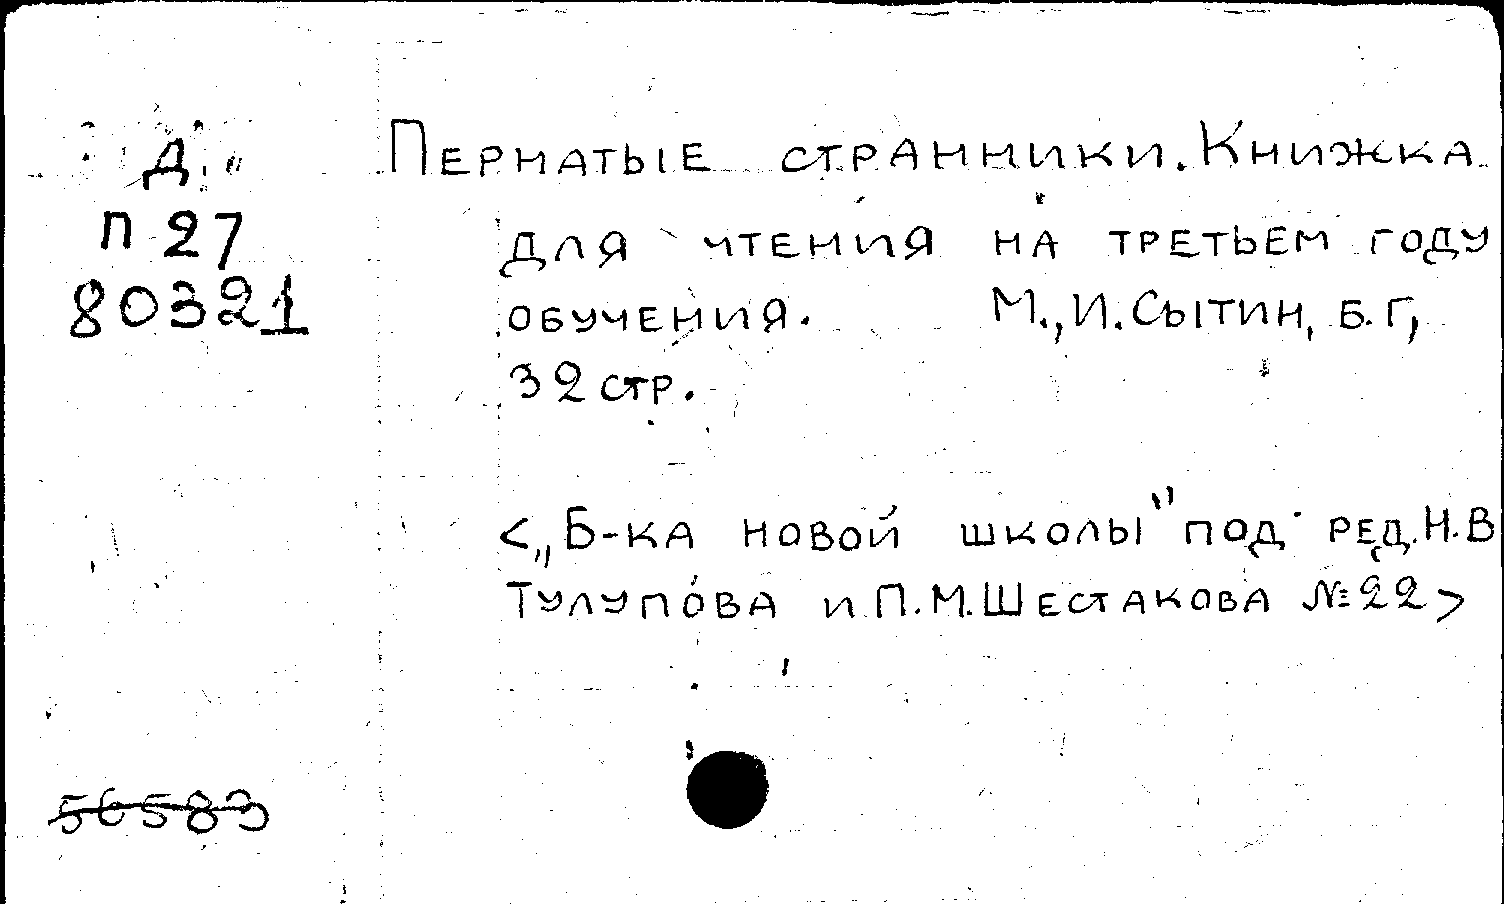 Д
П 27
80321
Пернатые странники. Книжка
для чтения на третьем году
обучения. М., И. Сытин, Б. Г.,
32 стр.
<„Б-ка новой школы" под ред. Н. В
Тулупова и П. М. Шестакова № 22>
56583